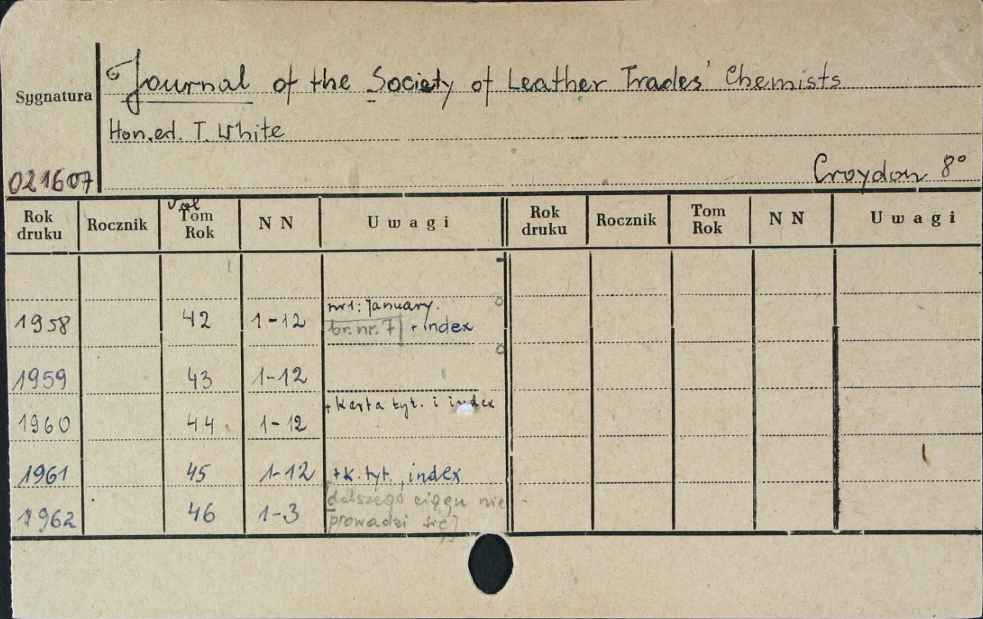 Journal of the Society of Leather Trades' Chemists
Sygnatura
Hon. ed. T. White
021607
Croydon 8°
Rok druku Rocznik Vol Tom Rok NN Uwagi Rok druku Rocznik Tom Rok NN Uwagi
nr 1: January.
1958 42 1-12 br. nr. 7 + index
1959 43 1-12
+ karta tyt. i index
1960 44 1-12
1961 45 1-12 +k. tyt., index
[dalszego ciągu nie
1962 46 1-3 prowadzi się]